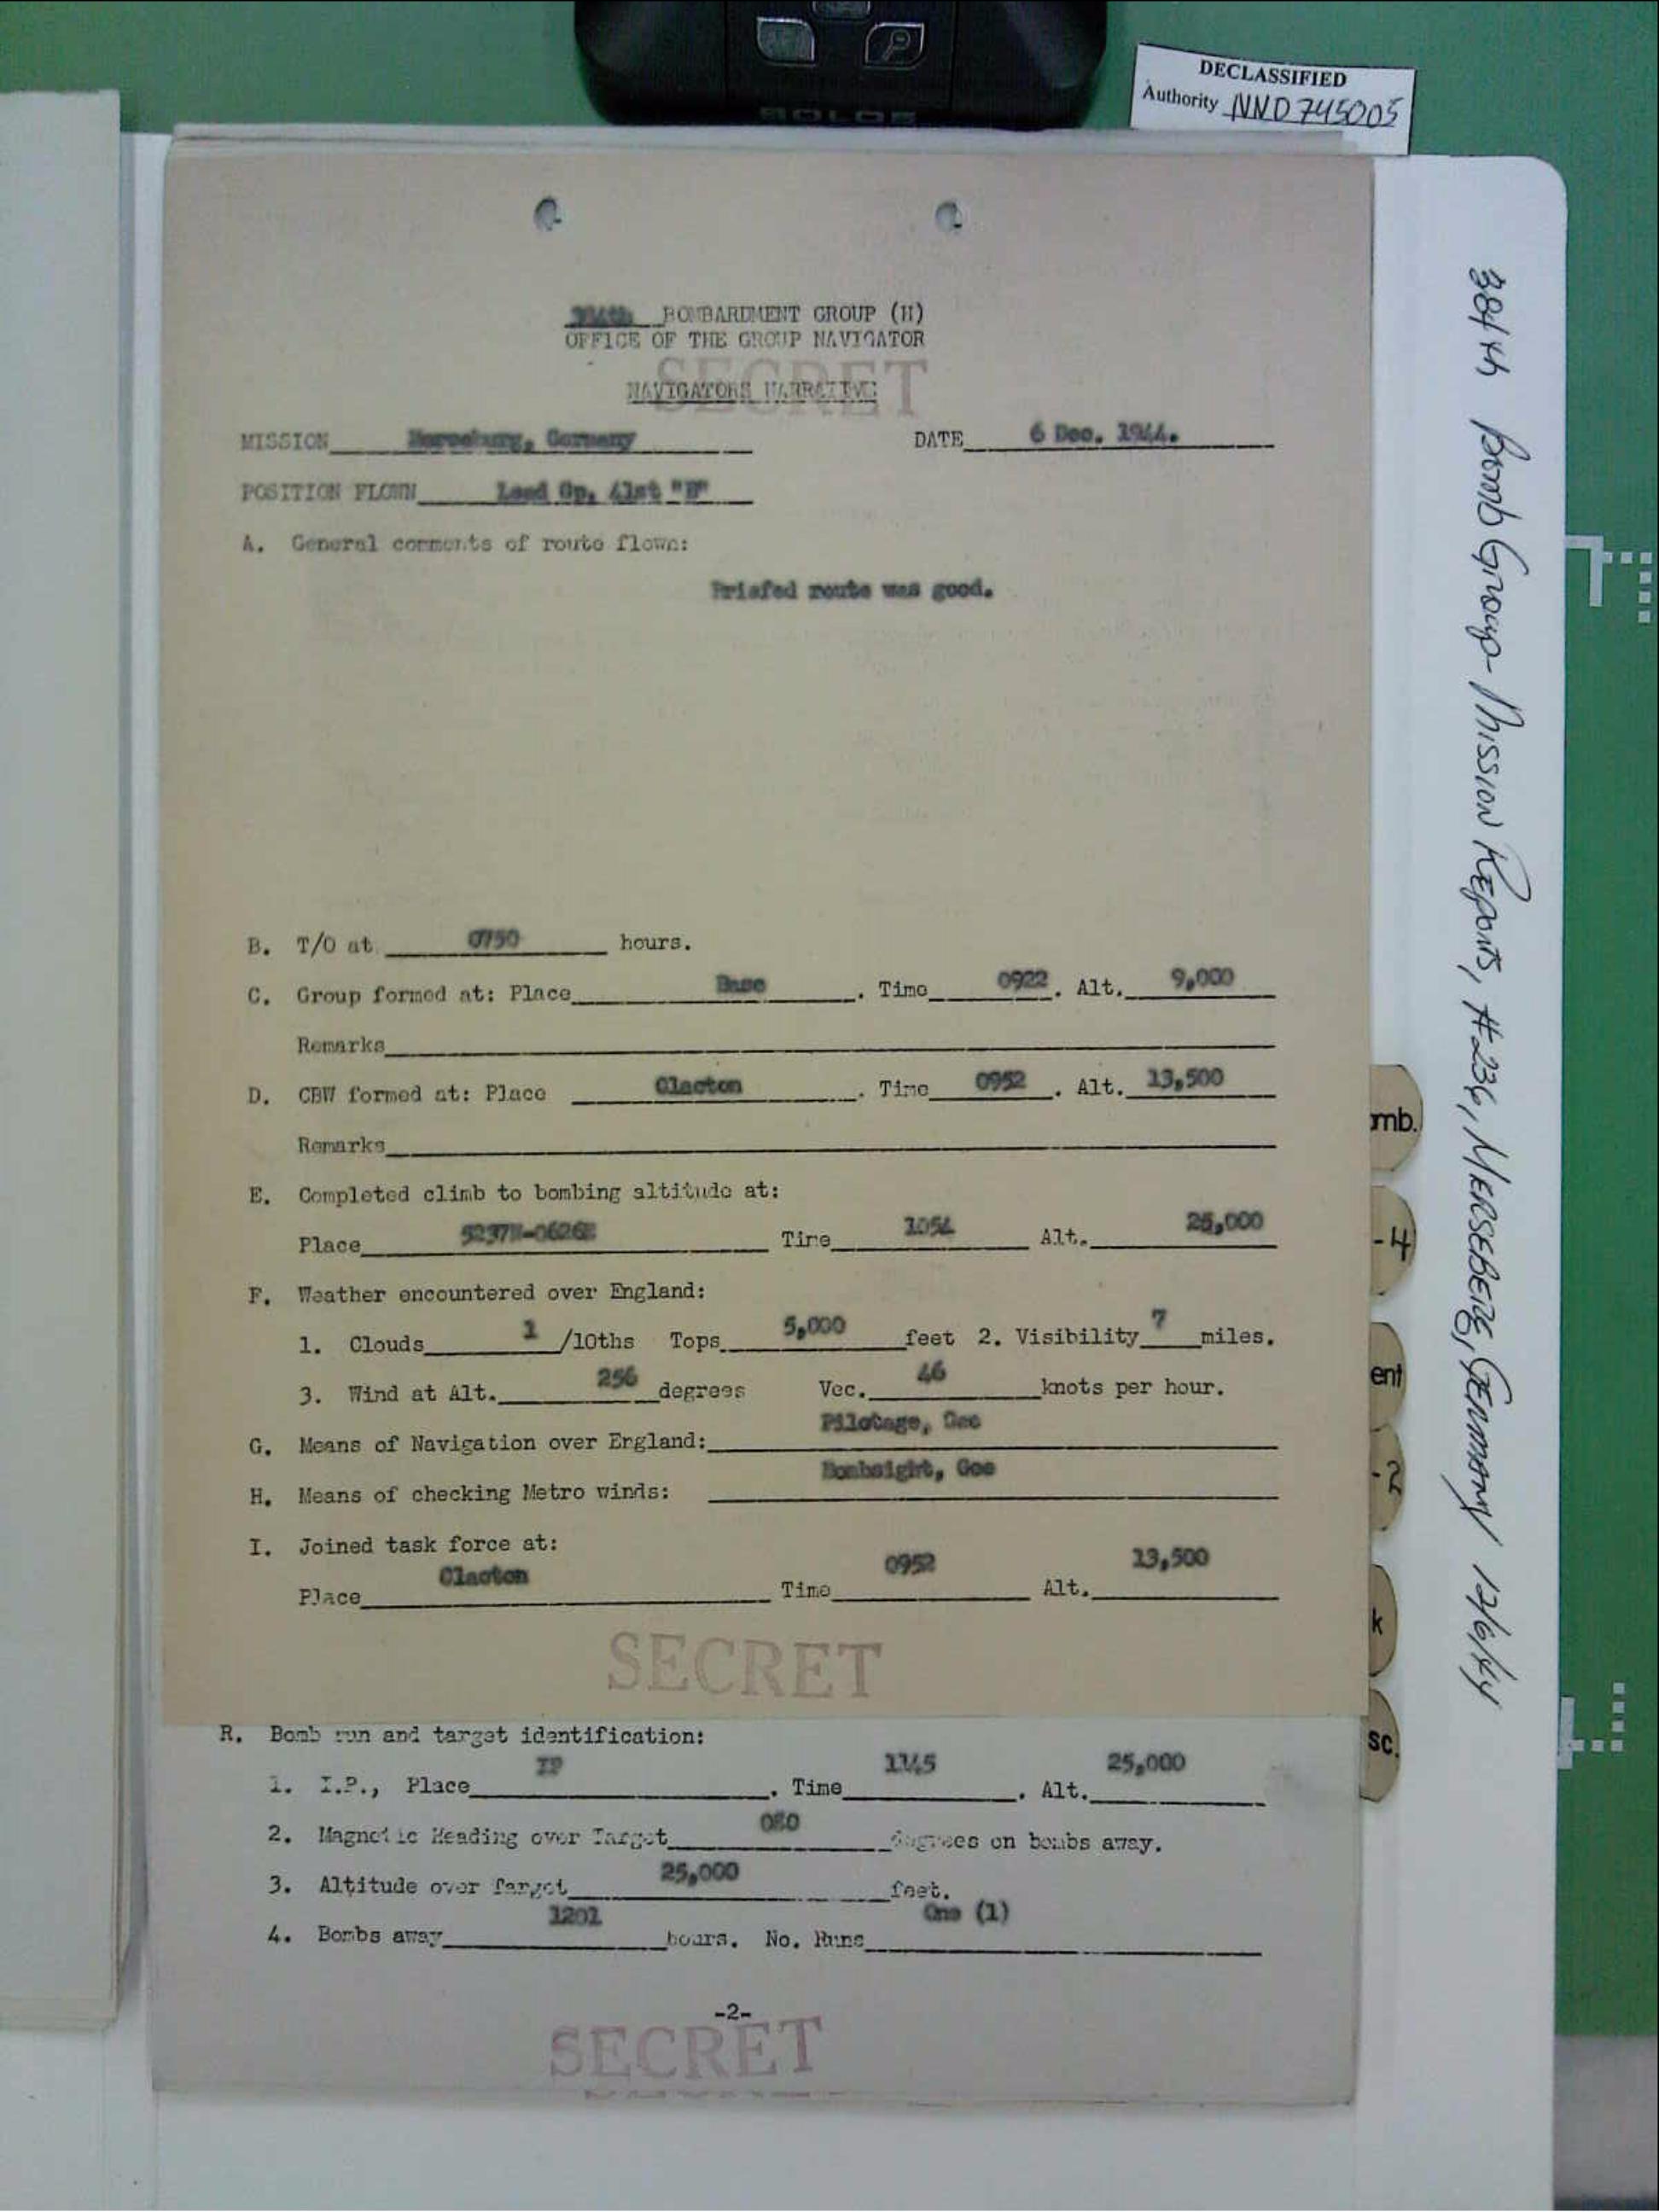 DECLASSIFIED
Authority NND 745005
384th BOMBARDMENT GROUP (H)
OFFICE OF THE GROUP NAVIGATOR
SECRET
NAVIGATORS NARRATIVE
MISSION Merseburg, Germany DATE 6 Dec. 1944.
POSITION FLOWN Lead Gp. 41st "B"
A. General comments of route flown:
Briefed route was good.
B. T/O at 0750 hours.
C. Group formed at: Place Base . Time 0922 . Alt. 9,000
Remarks
D. CBW formed at: Place Clacton . Time 0952 . Alt. 13,500
Remarks
E. Completed climb to bombing altitude at:
Place 5237N-0626E Time 1054 Alt. 25,000
F. Weather encountered over England:
1. Clouds 1 /10ths Tops 5,000 feet 2. Visibility 7 miles.
3. Wind at Alt. 256 degrees Vec. 46 knots per hour.
G. Means of Navigation over England: Pilotage, Gee
H. Means of checking Metro winds: Bombsight, Gee
I. Joined task force at:
Place Clacton Time 0952 Alt. 13,500
SECRET
R. Bomb run and target identification:
1. I.P., Place IP . Time 1145 . Alt. 25,000
2. Magnetic Heading over Target 080 degrees on bombs away.
3. Altitude over Target 25,000 feet.
4. Bombs away 1201 hours. No. Runs One (1)
-2-
SECRET
mb.
-4
ent
-2
k
sc.
384th Bomb Group - Mission Reports, #236, MERSEBERG, GERMANY 12/6/44